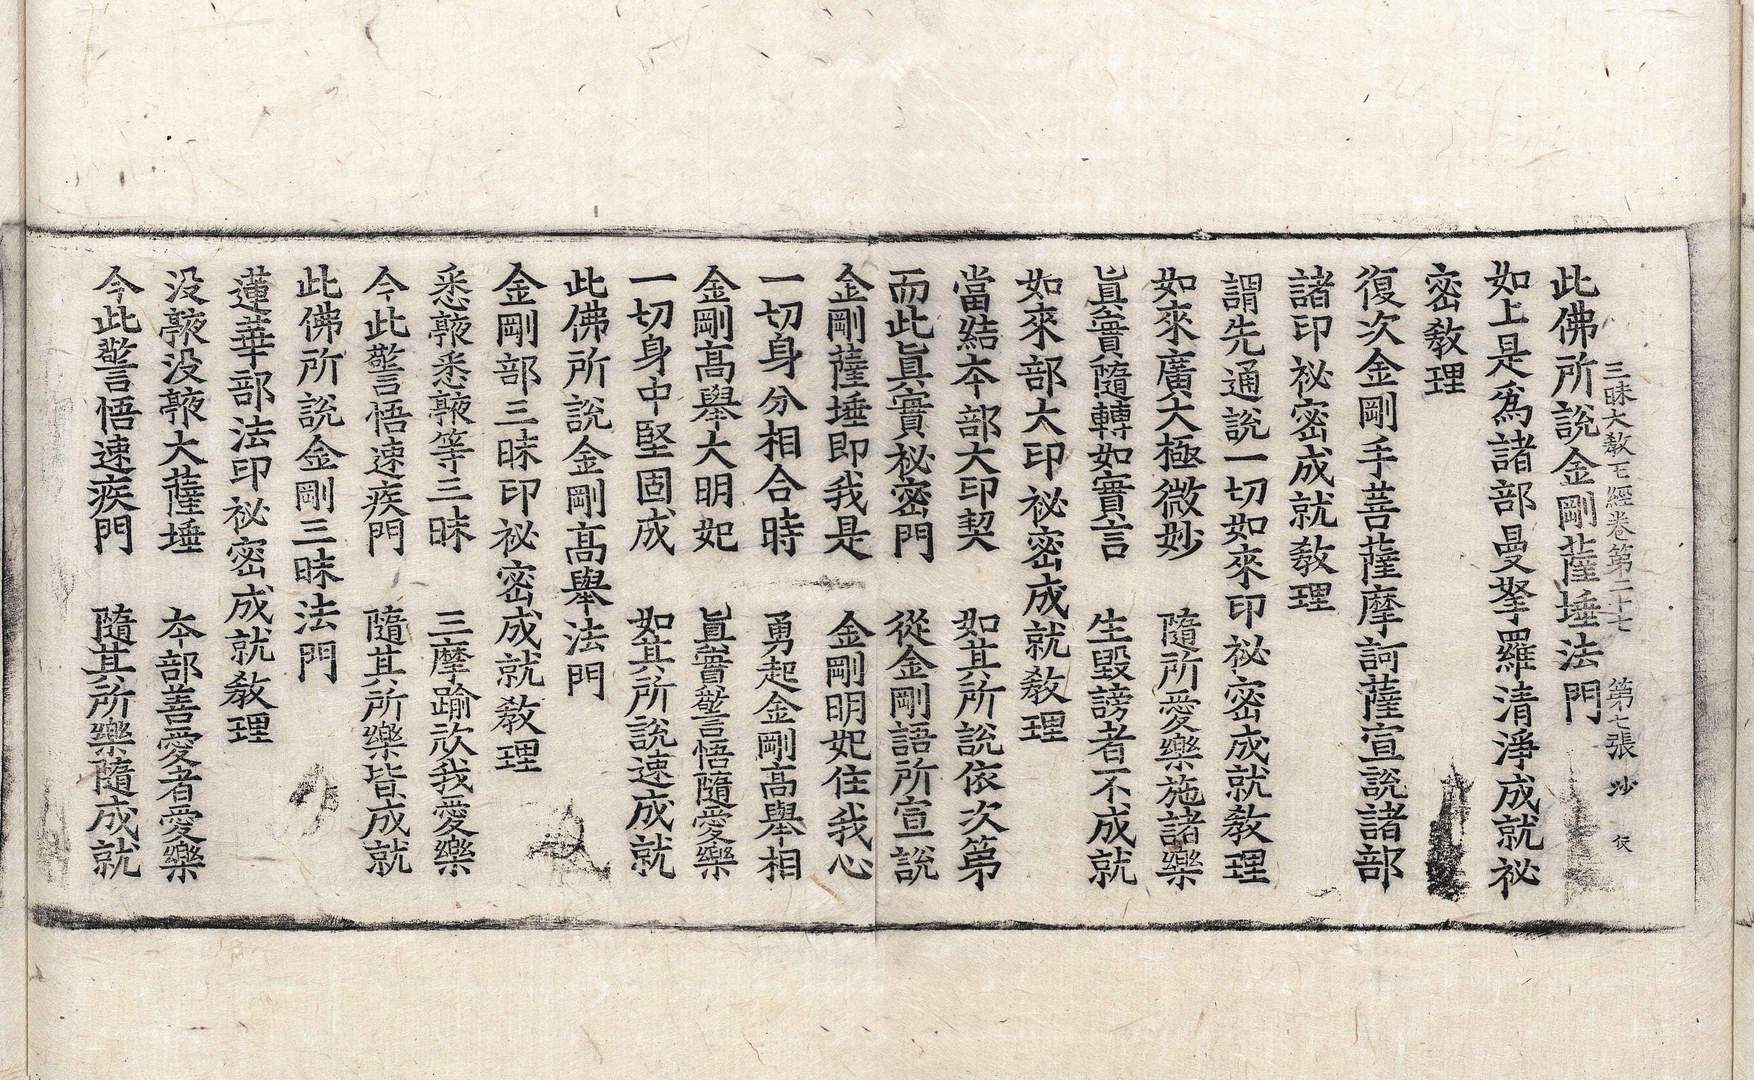 三昧大敎王經卷第二十七 第七張 㘯
此佛所說金剛薩埵法門
如上是爲諸部曼拏羅清淨成就祕
密敎理
復次金剛手菩薩摩訶薩宣說諸部
諸印祕密成就敎理
謂先通說一切如來印祕密成就敎理
如來廣大極微妙 隨所愛樂施諸樂
眞實隨轉如實言 生毀謗者不成就
如來部大印祕密成就敎理
當結本部大印契 如其所說依次第
而此眞實祕密門 從金剛語所宣說
金剛薩埵即我是 金剛明妃住我心
一切身分相合時 勇起金剛高擧相
金剛高擧大明妃 眞實警悟隨愛樂
一切身中堅固成 如其所說速成就
此佛所說金剛高擧法門
金剛部三昧印祕密成就敎理
悉𩕳悉𩕳等三昧 三摩踰㳄我愛樂
今此警悟速疾門 隨其所樂皆成就
此佛所說金剛三昧法門
蓮華部法印祕密成就敎理
没𩕳没𩕳大薩埵 本部善愛者愛樂
今此警悟速疾門 隨其所樂隨成就